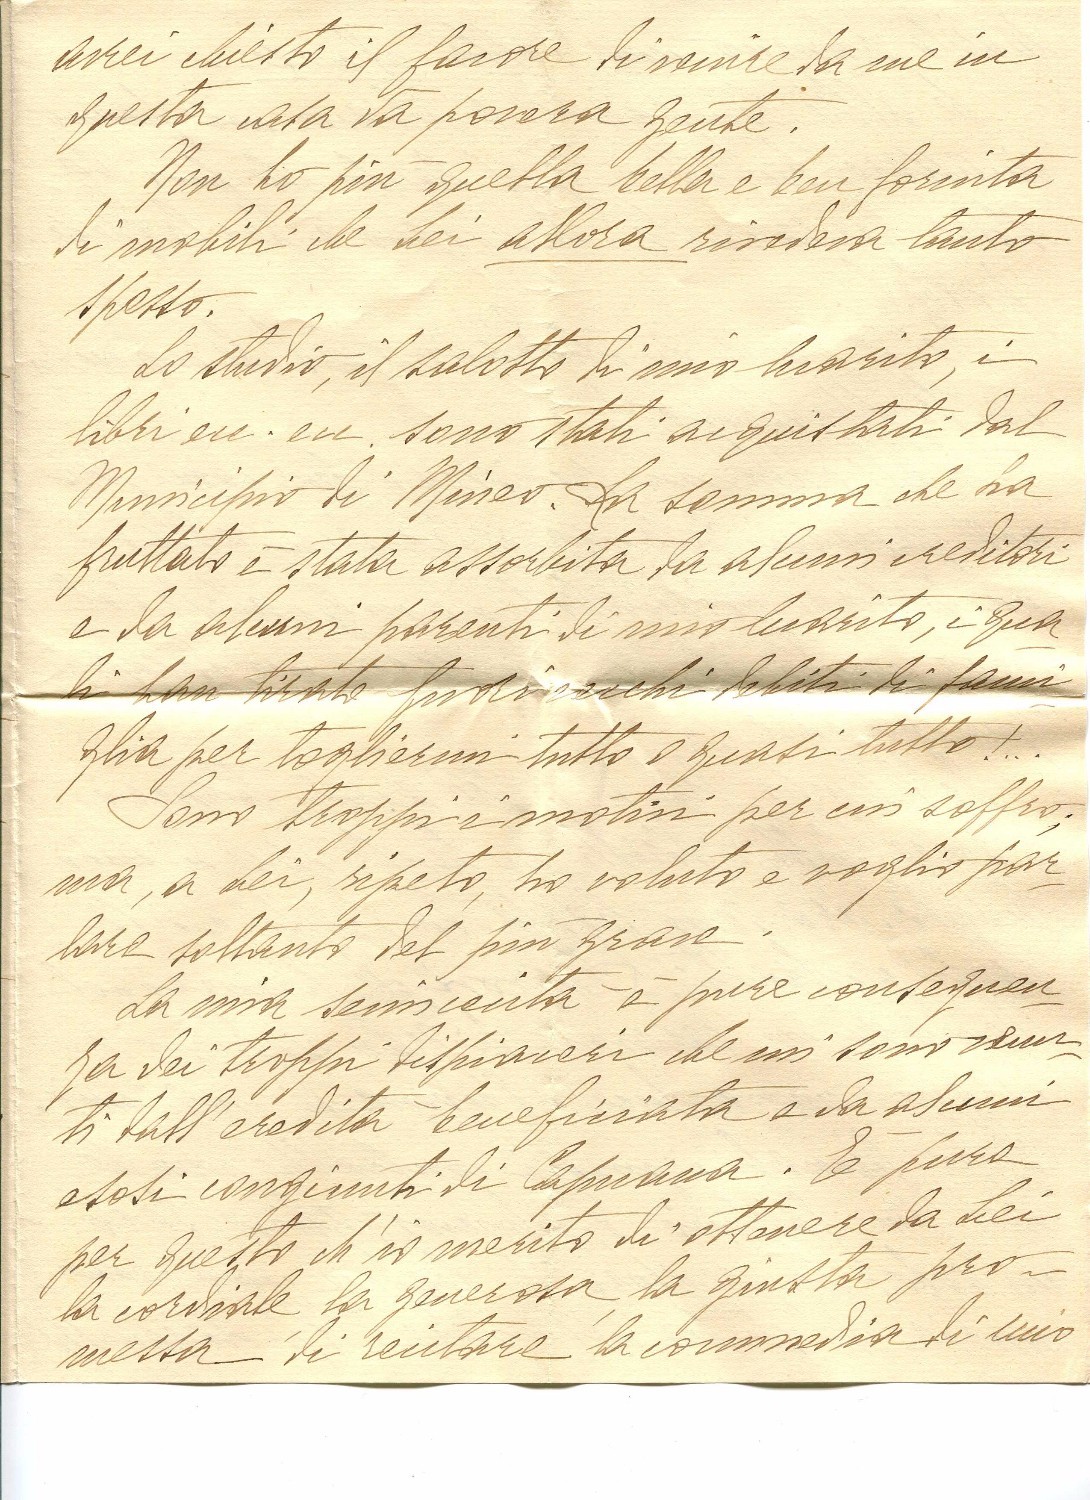 avrei chiesto il favore di venire da me in
questa casa da povera gente.
Non ho più quella bella e ben fornita
di mobili che Lei allora rivedeva tanto
spesso.
Lo studio, il salotto di mio marito, i
libri ecc. ecc. sono stati acquistati dal
Municipio di Mineo. La somma che ha
fruttato è stata assorbita da alcuni creditori
e da alcuni parenti di mio marito, i qua
li han tirato fuori vecchi debiti di fami-
glia per togliermi tutto o quasi tutto!...
Sono troppi i motivi per cui soffro;
ma, a Lei, ripeto, ho voluto e voglio par-
lare soltanto del più grave.
La mia semicecità è pure conseguen-
za dei troppi dispiaceri che mi sono venu-
ti dall'eredità beneficiata e da alcuni
esosi congiunti di Capuana. È pure
per questo ch'io merito di ottenere da Lei
la cordiale, la generosa, la giusta pro-
messa di recitare la commedia di mio